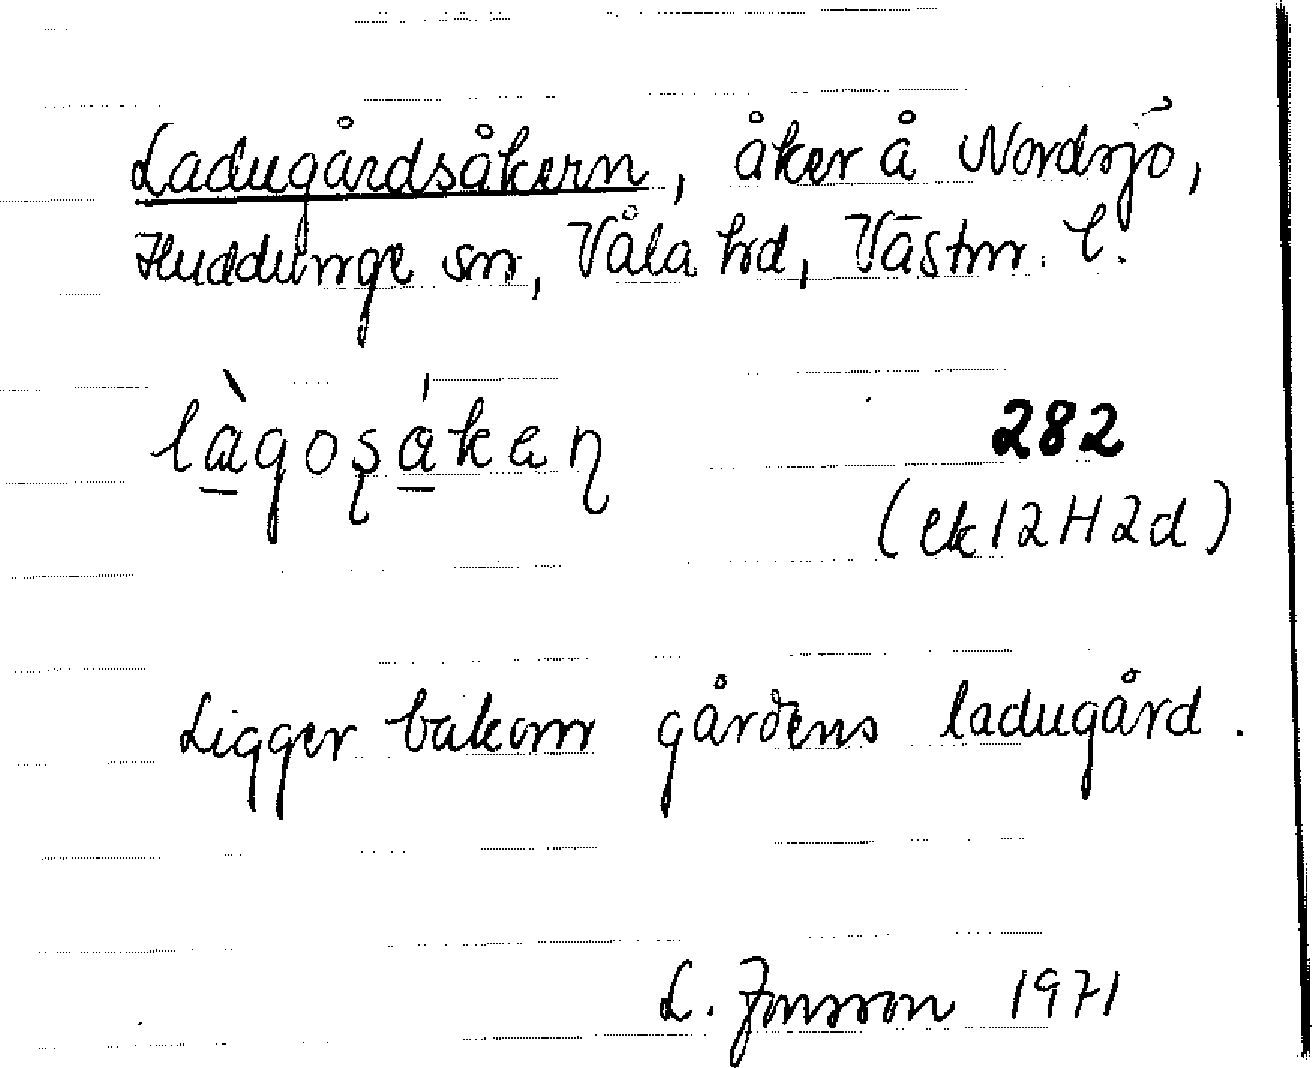 Ladugårdsåkern, åker å Nordsjö,
Huddunge sn, Våla hd, Västm. l.
là̱goşá̱keɳ
282
(ek 12H2d)
Ligger bakom gårdens ladugård.
L. Jonsson 1971